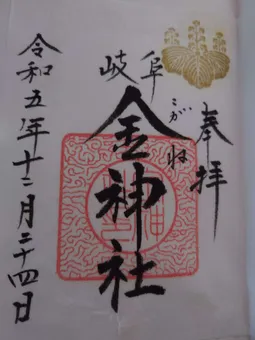 奉拝
岐阜
金神社
こがね
令和五年十二月二十四日